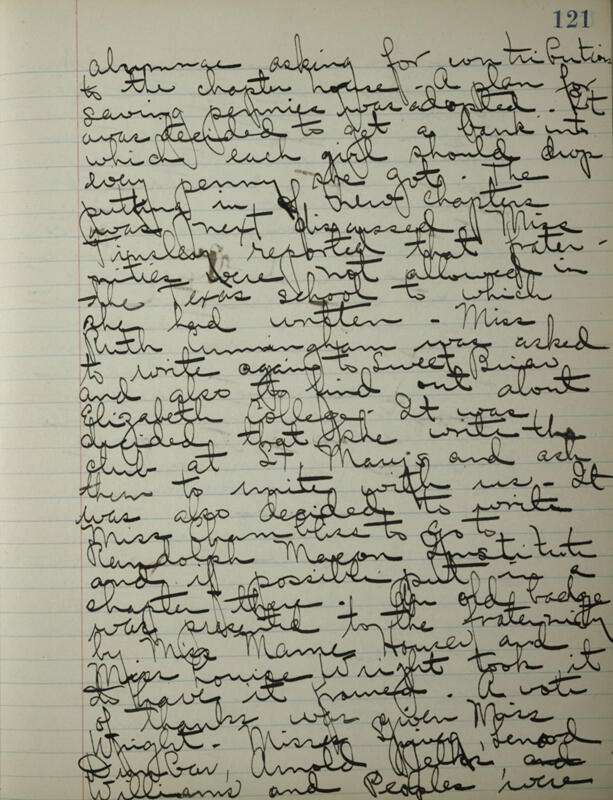 121
alumnae asking for contributions
to the chapter house - A plan for
saving pennies was adopted. It
was decided to get a bank into
which each girl should drop
every penny she got. The
putting in of new chapters
was next discussed. Miss
Tinsley reported that frater-
nities were not allowed in
the Texas school to which
she had written - Miss
Ruth Cunningham was asked
to write again to Sweet Briar
and also to find out about
Elizabeth College. It was
decided that she write the
club at St. Mary's and ask
them to unite with us - It
was also decided to write
Miss Chambliss to go to
Randolph Macon Institute
and if possible put in a
chapter there. An old badge
was presented to the fraternity
by Miss Mame Houser and
Miss Louise Wright took it
to have it framed. A vote
of thanks was given Miss
Wright - Misses
Dunbar, Arnold and
Williams and Peoples were